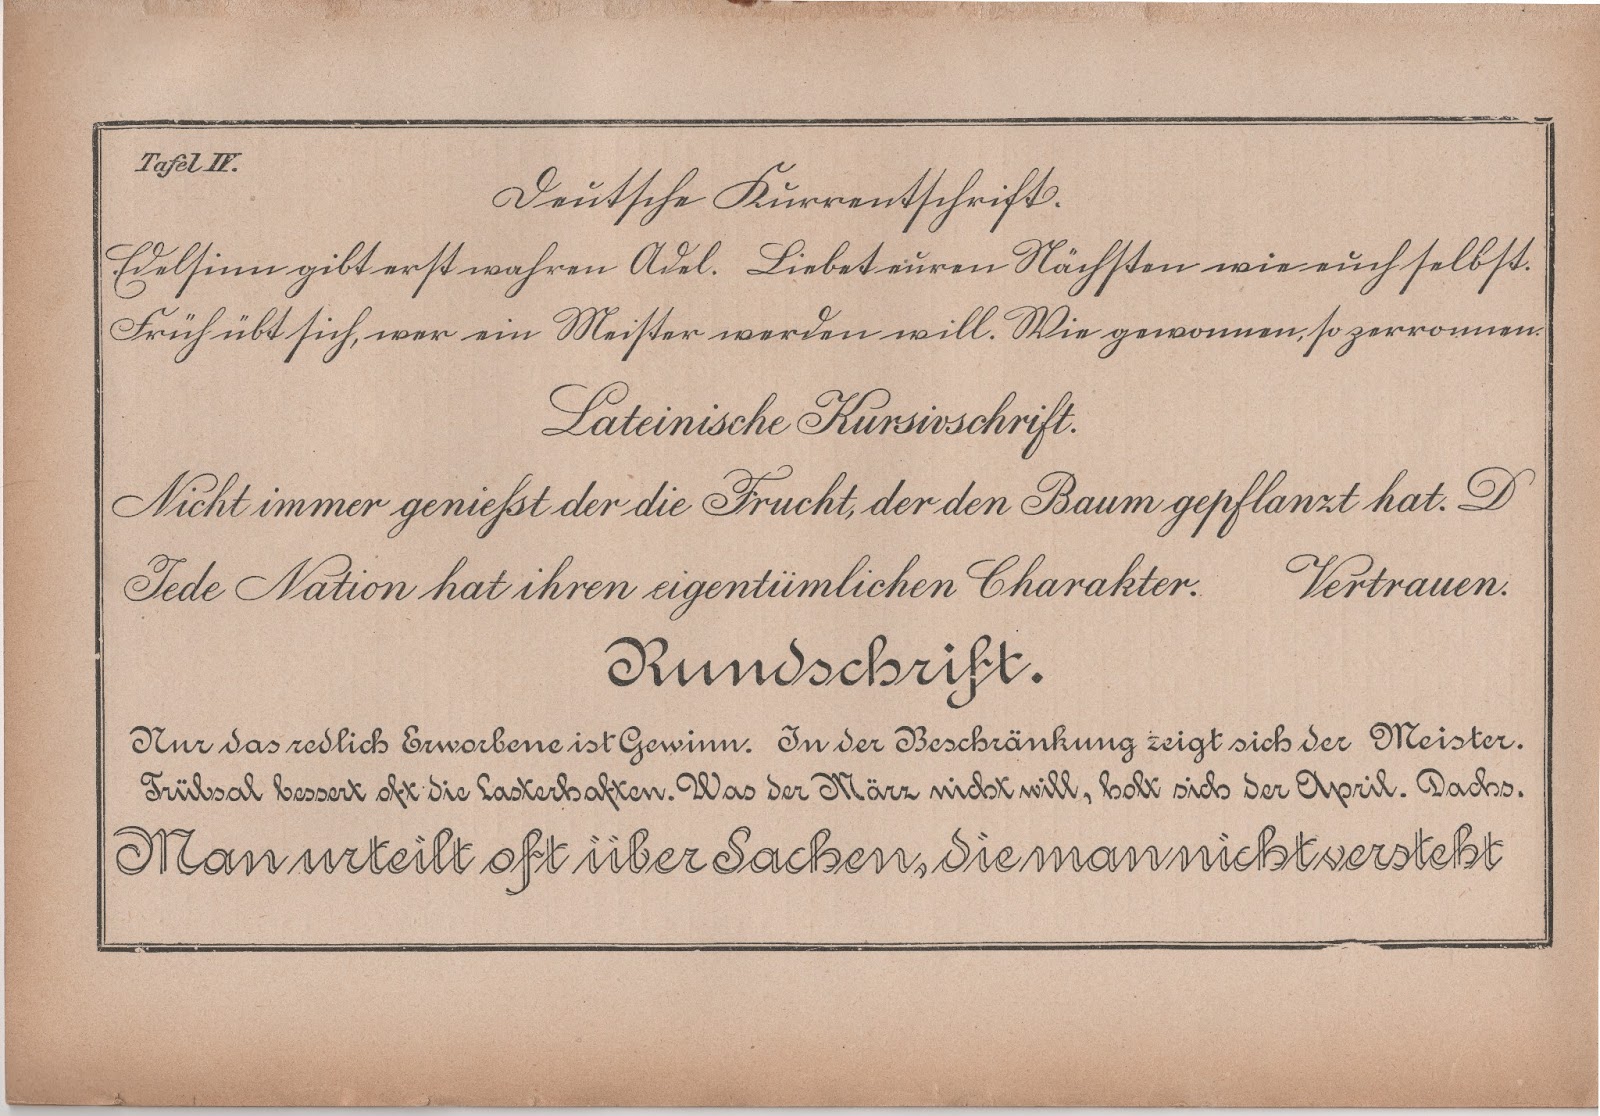 Tafel IV.
Deutsche Kurrentschrift.
Edelsinn gibt erst wahren Adel. Liebet euren Nächsten wie euch selbst.
Früh übt sich, wer ein Meister werden will. Wie gewonnen, so zerronnen.
Lateinische Kursivschrift.
Nicht immer genießt der die Frucht, der den Baum gepflanzt hat. D
Jede Nation hat ihren eigentümlichen Charakter. Vertrauen.
Rundschrift.
Nur das redlich Erworbene ist Gewinn. In der Beschränkung zeigt sich der Meister.
Trübsal bessert oft die Lasterhaften. Was der März nicht will, holt sich der April. Dachs.
Man urteilt oft über Sachen, die man nicht versteht